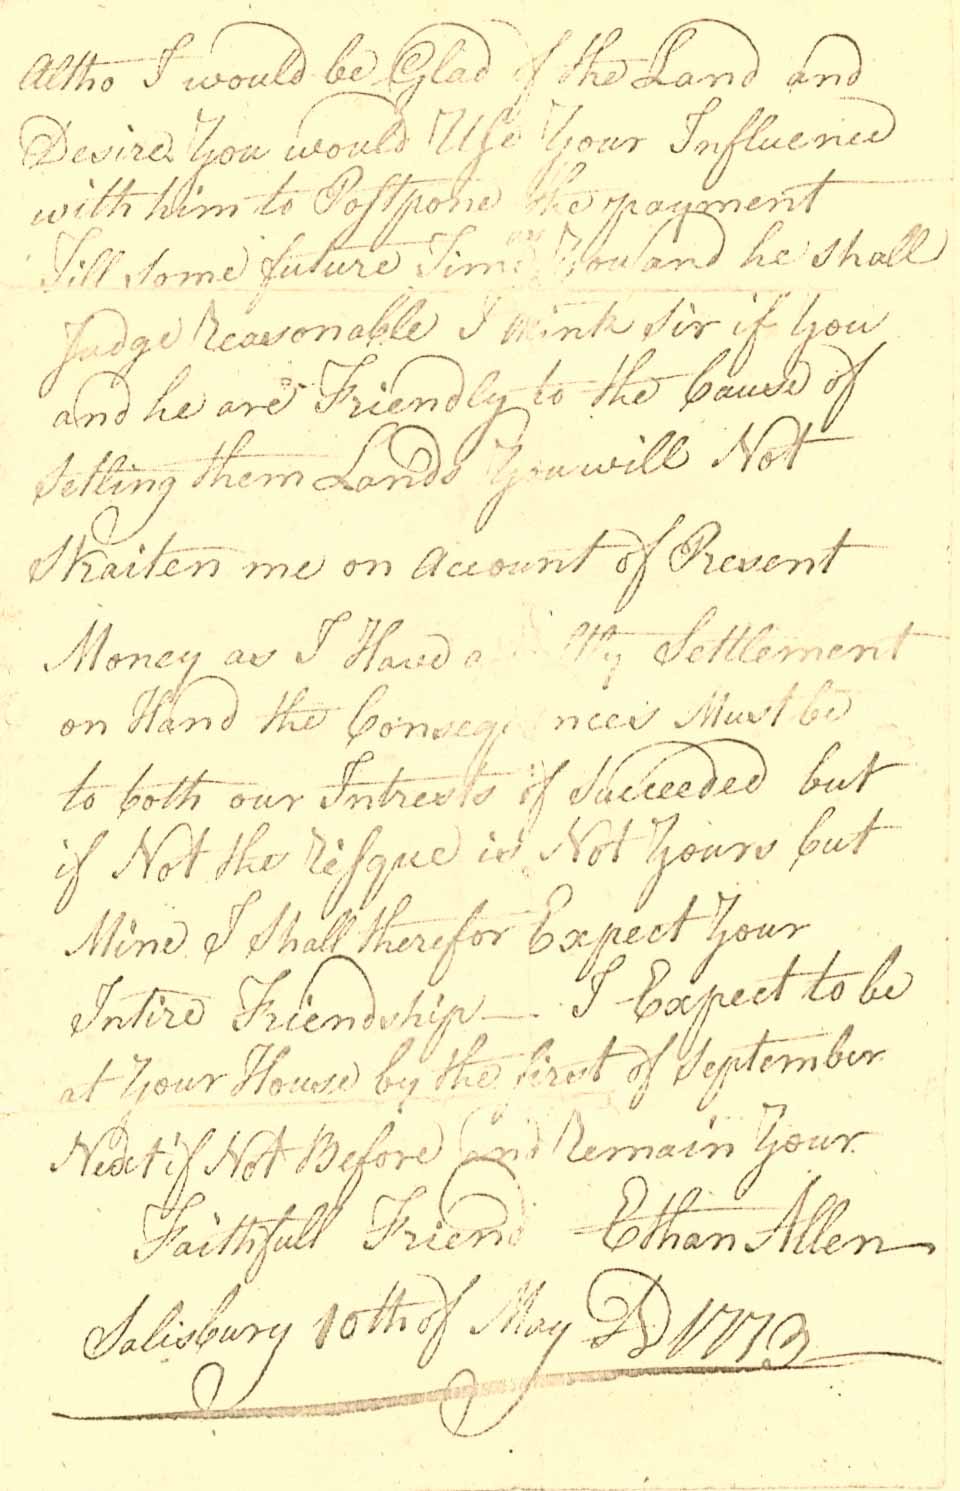 Altho I would be Glad of the Land and
Desire You would Use Your Influence
with him to Postpone the payment
Till some future Time as You and he shall
Judge Reasonable I think Sir if You
and he are Friendly to the Cause of
Setling them Lands You will Not
Straiten me on Account of Present
Money as I Have a Settlement
on Hand the Consequences Must be
to both our Intrests if Succeeded but
if Not the risque is Not Yours but
Mine I Shall therefor Expect Your
Intire Friendship — I Expect to be
at Your House by the first of September
Next if Not Before and Remain Your
Faithfull Friend Ethan Allen
Salisbury 10th of May AD 1773